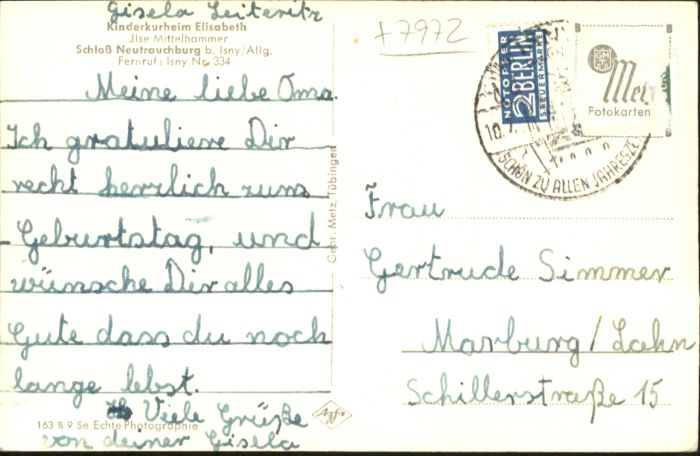 Gisela Leiteritz
Kinderkurheim Elisabeth
Jlse Mittelhammer
Schloß Neutrauchburg b. Isny/Allg.
Fernruf: Isny Nr. 334
Meine liebe Oma.
Ich gratuliere Dir
recht herzlich zum
Geburtstag, und
wünsche Dir alles
Gute dass du noch
lange lebst.
Viele Grüße
von deiner Gisela
163 B 9 Se Echte Photographie
Agfa
Gebr. Metz, Tübingen
+7972
NOTOPFER
2 BERLIN
STEUERMARKE
SCHÖN ZU ALLEN JAHRESZE
Metz
Fotokarten
Frau
Gertrude Simmer
Marburg/Lahn
Schillerstraße 15